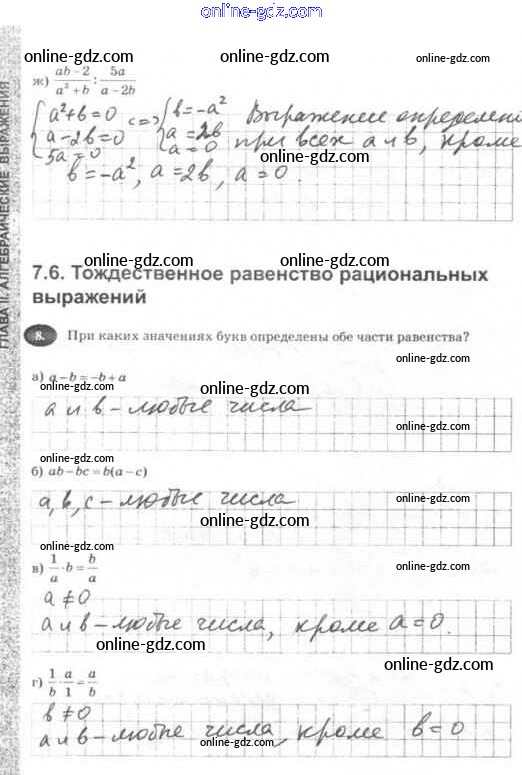 online-gdz.com
ГЛАВА II. АЛГЕБРАИЧЕСКИЕ ВЫРАЖЕНИЯ
online-gdz.com online-gdz.com online-gdz.com
ж) (ab − 2)/(a² + b) : 5a/(a − 2b)
online-gdz.com online-gdz.com online-gdz.com
{ a²+b=0 <=> { b=−a² Выражение определено
a−2b=0 a=2b при всех a и b, кроме
5a=0 a=0
online-gdz.com
b=−a², a=2b, a=0.
online-gdz.com online-gdz.com online-gdz.com
7.6. Тождественное равенство рациональных
выражений
online-gdz.com
8. При каких значениях букв определены обе части равенства?
online-gdz.com
online-gdz.com
а) a − b = −b + a
online-gdz.com online-gdz.com
a и b – любые числа
online-gdz.com
online-gdz.com
б) ab − bc = b(a − c)
online-gdz.com
a, b, c – любые числа
online-gdz.com
online-gdz.com
в) 1/a · b = b/a
online-gdz.com
a ≠ 0
a и b – любые числа, кроме a=0.
online-gdz.com
online-gdz.com
г) 1/b · a/1 = a/b
b ≠ 0
a и b – любые числа, кроме b=0
online-gdz.com online-gdz.com
online-gdz.com